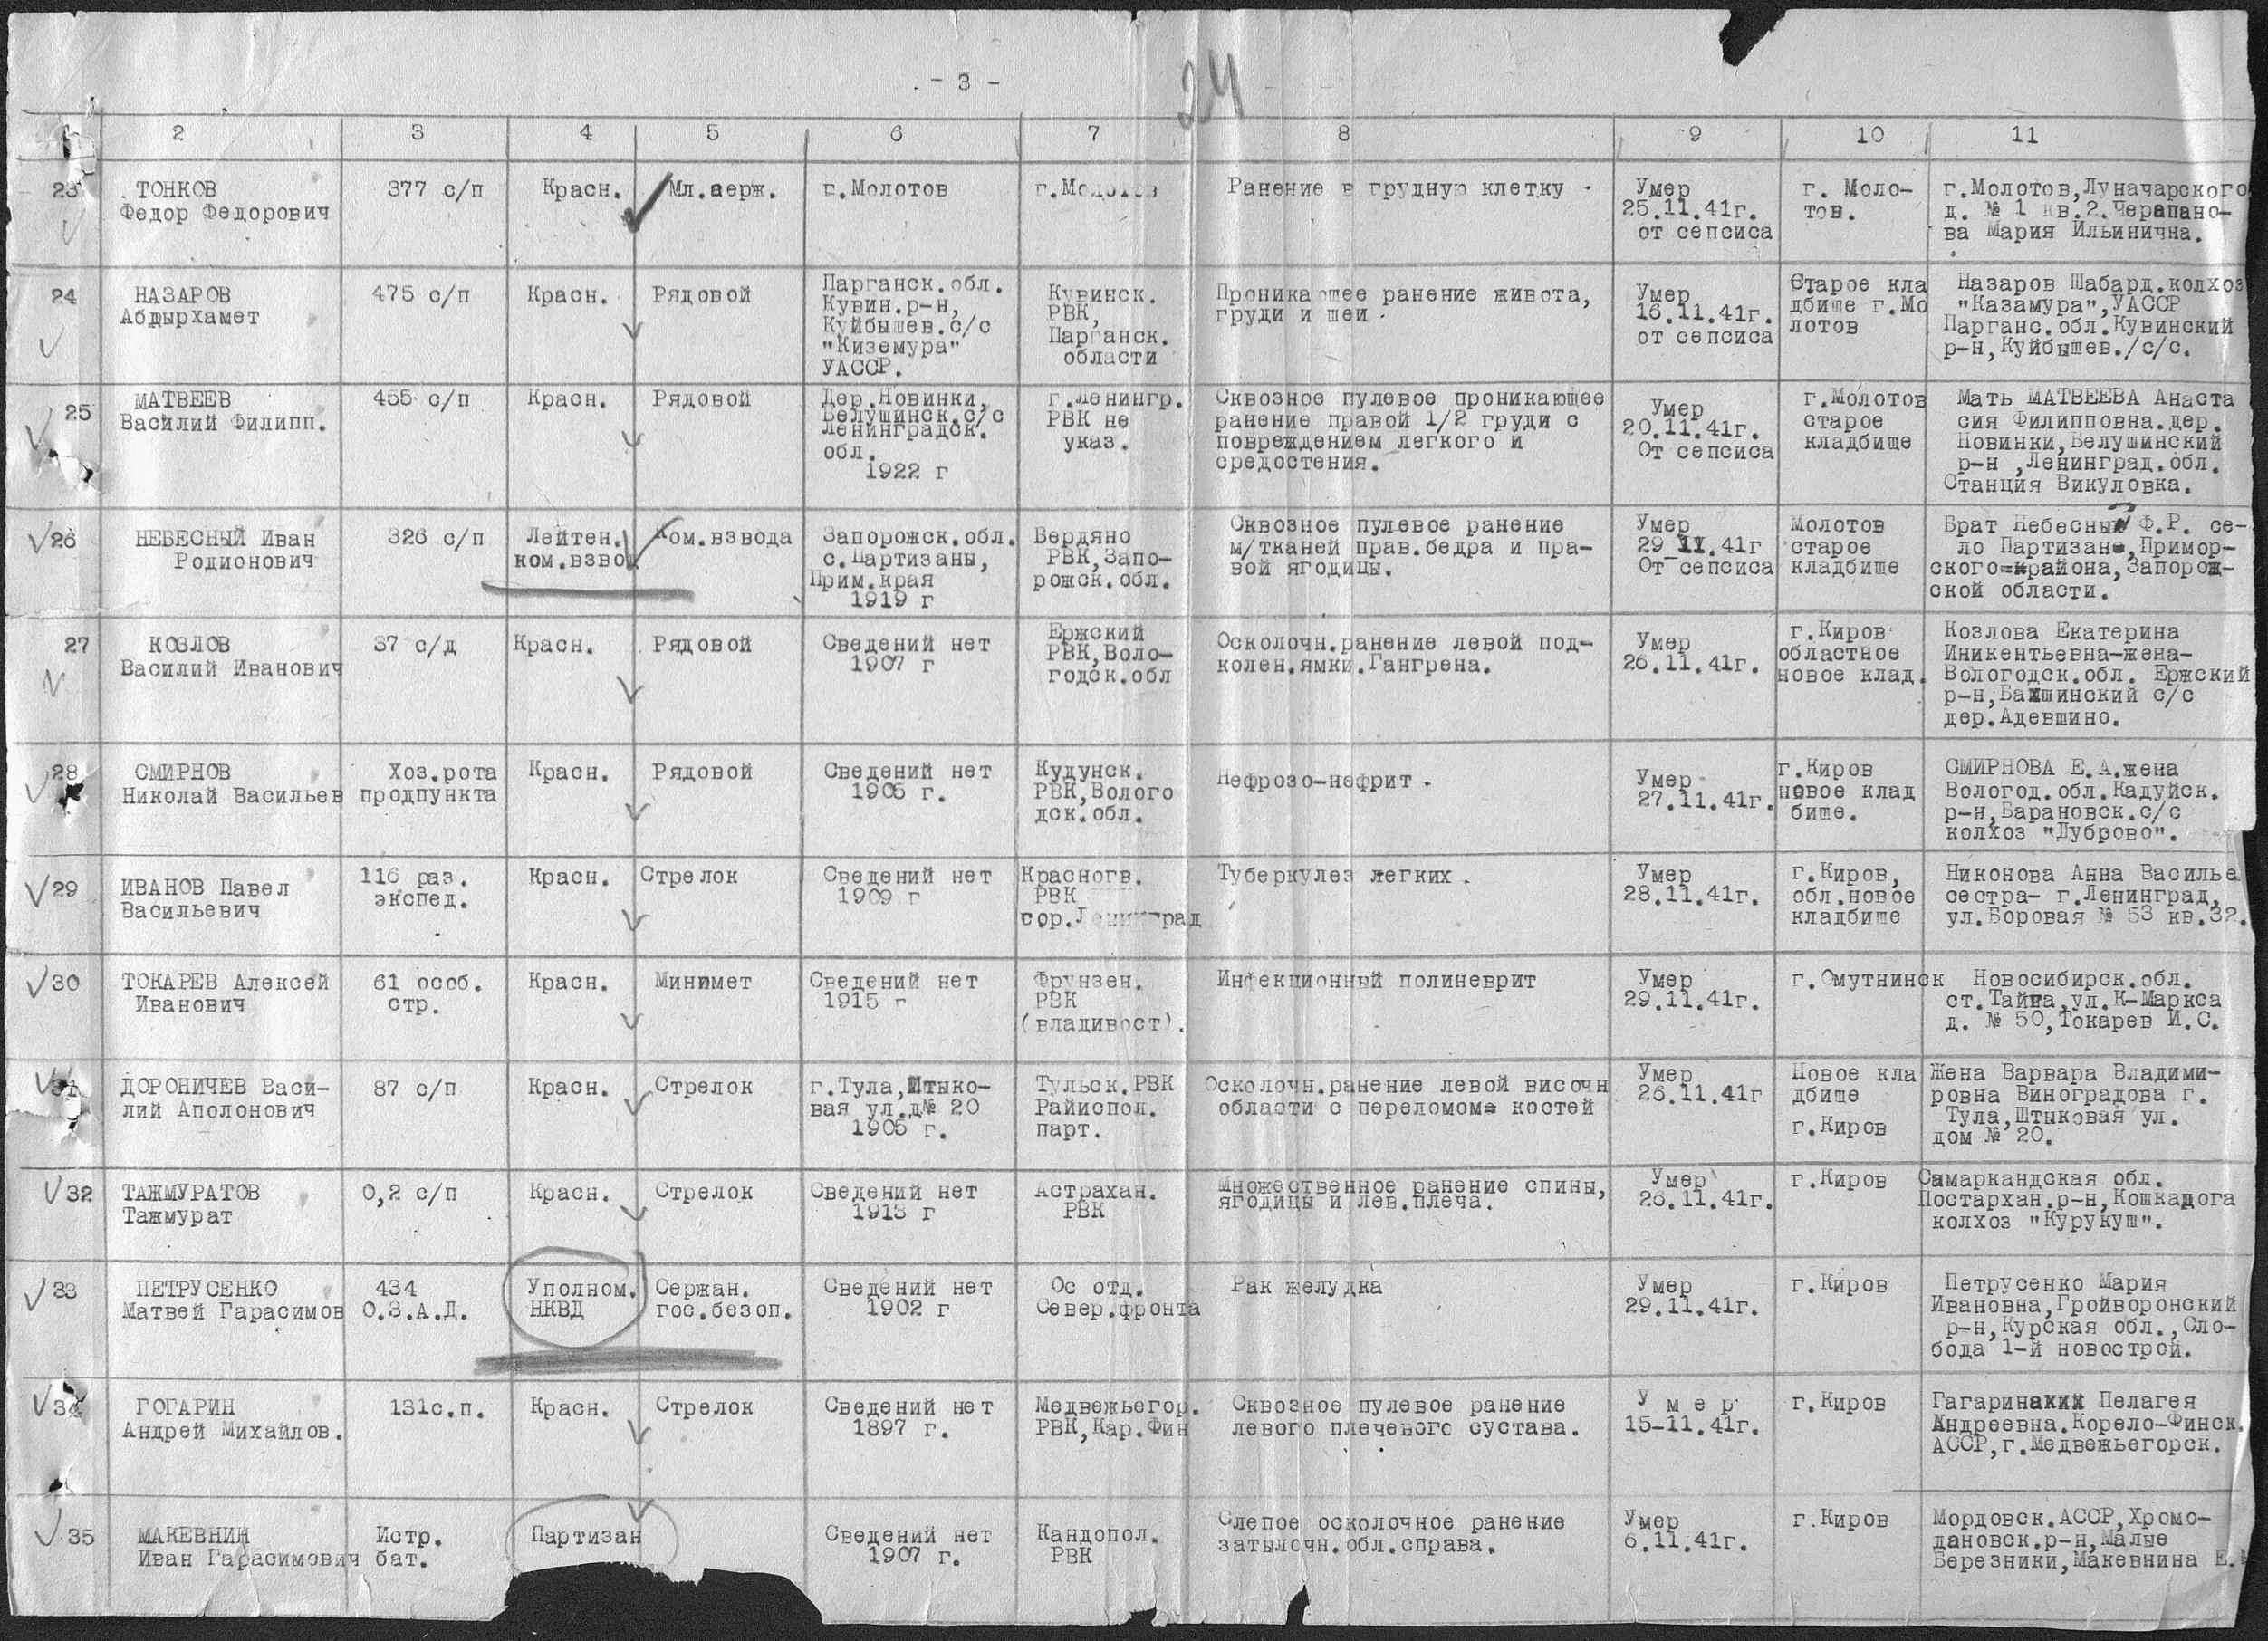 - 3 -
24
2 3 4 5 6 7 8 9 10 11
23
ТОНКОВ
Федор Федорович
377 с/п
Красн.
Мл.серж.
г.Молотов
г.Молотов
Ранение в грудную клетку
Умер
25.11.41г.
от сепсиса
г. Моло-
тов.
г.Молотов,Луначарского
д. № 1 кв.2.Черапано-
ва Мария Ильинична.
24
НАЗАРОВ
Абдырхамет
475 с/п
Красн.
Рядовой
Парганск.обл.
Кувин.р-н,
Куйбышев.с/с
"Киземура"
УАССР.
Кувинск.
РВК,
Парганск.
области
Проникающее ранение живота,
груди и шеи.
Умер
16.11.41г.
от сепсиса
Старое кла
дбище г.Мо
лотов
Назаров Шабард.колхоз
"Казамура",УАССР
Парганс.обл.Кувинский
р-н,Куйбышев./с/с.
25
МАТВЕЕВ
Василий Филипп.
455 с/п
Красн.
Рядовой
Дер.Новинки,
Белушинск.с/с
Ленинградск.
обл.
1922 г
г.Ленингр.
РВК не
указ.
Сквозное пулевое проникающее
ранение правой 1/2 груди с
повреждением легкого и
средостения.
Умер
20.11.41г.
От сепсиса
г.Молотов
старое
кладбище
Мать МАТВЕЕВА Анаста
сия Филипповна.дер.
Новинки,Белушинский
р-н ,Ленинград.обл.
Станция Викуловка.
26
НЕБЕСНЫЙ Иван
Родионович
326 с/п
Лейтен.
ком.взвод
Ком.взвода
Запорожск.обл.
с.Партизаны,
Прим.края
1919 г
Бердяно
РВК,Запо-
рожск.обл.
Сквозное пулевое ранение
м/тканей прав.бедра и пра-
вой ягодицы.
Умер
29.11.41г
От сепсиса
Молотов
старое
кладбище
Брат Небесный Ф.Р. се-
ло Партизан,Примор-
ского района,Запорож-
ской области.
27
КОЗЛОВ
Василий Иванович
37 с/д
Красн.
Рядовой
Сведений нет
1907 г
Ержский
РВК,Воло-
годск.обл
Осколочн.ранение левой под-
колен.ямки.Гангрена.
Умер
26.11.41г.
г.Киров
областное
новое клад.
Козлова Екатерина
Иникентьевна-жена-
Вологодск.обл. Ержский
р-н,Бакшинский с/с
дер.Адевшино.
28
СМИРНОВ
Николай Васильев
Хоз.рота
продпункта
Красн.
Рядовой
Сведений нет
1905 г.
Кудунск.
РВК,Волого
дск.обл.
Нефрозо-нефрит.
Умер
27.11.41г.
г.Киров
новое клад
бище.
СМИРНОВА Е.А.жена
Вологод.обл.Кадуйск.
р-н,Барановск.с/с
колхоз "Дуброво".
29
ИВАНОВ Павел
Васильевич
116 раз.
экспед.
Красн.
Стрелок
Сведений нет
1909 г
Красногв.
РВК
гор.Ленинград
Туберкулез легких.
Умер
28.11.41г.
г.Киров,
обл.новое
кладбище
Никонова Анна Василье
сестра- г.Ленинград,
ул.Боровая № 53 кв.32.
30
ТОКАРЕВ Алексей
Иванович
61 особ.
стр.
Красн.
Минимет
Сведений нет
1915 г
Фрунзен.
РВК
(владивост).
Инфекционный полиневрит
Умер
29.11.41г.
г.Омутнинск
Новосибирск.обл.
ст.Тайга,ул.К-Маркса
д. № 50,Токарев И.С.
31
ДОРОНИЧЕВ Васи-
лий Аполонович
87 с/п
Красн.
Стрелок
г.Тула,Штыко-
вая ул.д№ 20
1905 г.
Тульск.РВК
Райиспол.
парт.
Осколочн.ранение левой височн
области с переломом костей
Умер
26.11.41г
Новое кла
дбище
г.Киров
Жена Варвара Владими-
ровна Виноградова г.
Тула,Штыковая ул.
дом № 20.
32
ТАЖМУРАТОВ
Тажмурат
0,2 с/п
Красн.
Стрелок
Сведений нет
1913 г
Астрахан.
РВК
Множественное ранение спины,
ягодицы и лев.плеча.
Умер
26.11.41г.
г.Киров
Самаркандская обл.
Постархан.р-н,Кошкадога
колхоз "Курукуш".
33
ПЕТРУСЕНКО
Матвей Гарасимов
434
О.З.А.Д.
Уполном.
НКВД
Сержан.
гос.безоп.
Сведений нет
1902 г
Ос отд.
Север.фронта
Рак желудка
Умер
29.11.41г.
г.Киров
Петрусенко Мария
Ивановна,Гройворонский
р-н,Курская обл.,Сло-
бода 1-й новострой.
34
ГОГАРИН
Андрей Михайлов.
131с.п.
Красн.
Стрелок
Сведений нет
1897 г.
Медвежьегор.
РВК,Кар.Фин
Сквозное пулевое ранение
левого плечевого сустава.
У м е р
15-11.41г.
г.Киров
Пелагея
Андреевна.Корело-Финск.
АССР,г.Медвежьегорск.
35
МАКЕВНИН
Иван Гарасимович
Истр.
бат.
Партизан
Сведений нет
1907 г.
Кандопол.
РВК
Слепое осколочное ранение
затылочн.обл.справа.
Умер
6.11.41г.
г.Киров
Мордовск.АССР,Хромо-
дановск.р-н,Малые
Березники,Макевнина Е.